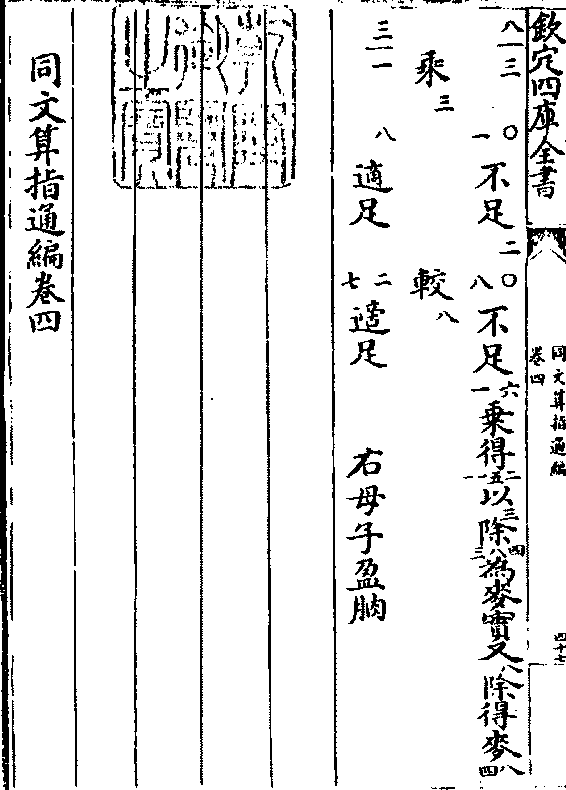 欽定四庫全書
同文算指通編
卷四
四十七
八三 一〇 不足 二〇八 不足 一六 乗得 一五二 以 三 除 三八四 為麥實又 八 除得麥 四八
乘 三 較 八
三一 八 適足 七二 適足 右母子盈朒
同文算指通編卷四